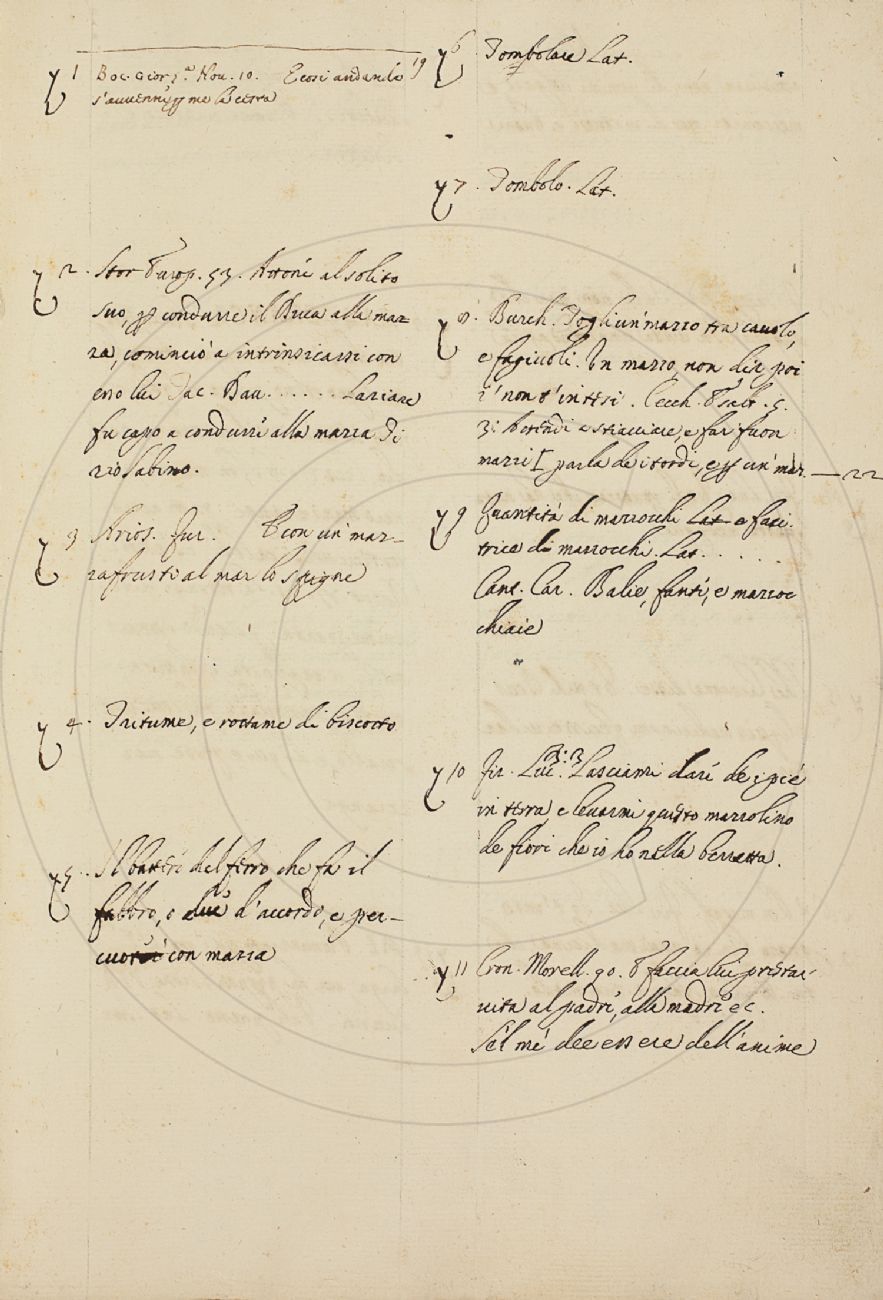 1 Boc. Gior. 7.ª Nov. 10. E cosi andando 19
s'avvenne p me la Cesta
2. Stor Europ. 53. Attone al solito
suo, p condurre il Duca alla maz=
za, cominciò a intrinsicarsi con
esso lui Jac. Dav. . . . . . Laziare
fu capo a condurre alla mazza Di
zio Sabino.
3 Arios. Fur. E con un' maz-
zafrusti al mar lo spigne
4. Tritume, e rottame di biscotto
5. Il battere del ferro, che fa il
fabbro, o due d'accordo, e per-
cuotere con mazza
6. Tombolare Lat.
7. Tombolo. Lat.
8. Burch. Togli un' mazzo tra cavolo,
e fagiuoli. In mazzo, non dir poi
i' non t'intesi. Cecch. Esalt. 5.
3: Actendi a stiacciare, e far fuon
mazzi [parla de i tordi, e p un' maz. — 22
9 Quantità di mazzocchi Lat e faci.
trice di mazzocchi. Lat. . . .
Cant. Car. Balie, fanti, e mazzoc
chiaie
10 Fir. Luc. 3: 3 Lasciami dare de i piè
in terra, e levarmi questo mazzolino
de fiori che io ho nella berretta.
11 Cron. Morell. 90. E faccia lui prestar
vita al padre, alla madre ec.
Se'l me dee essere dell'anime